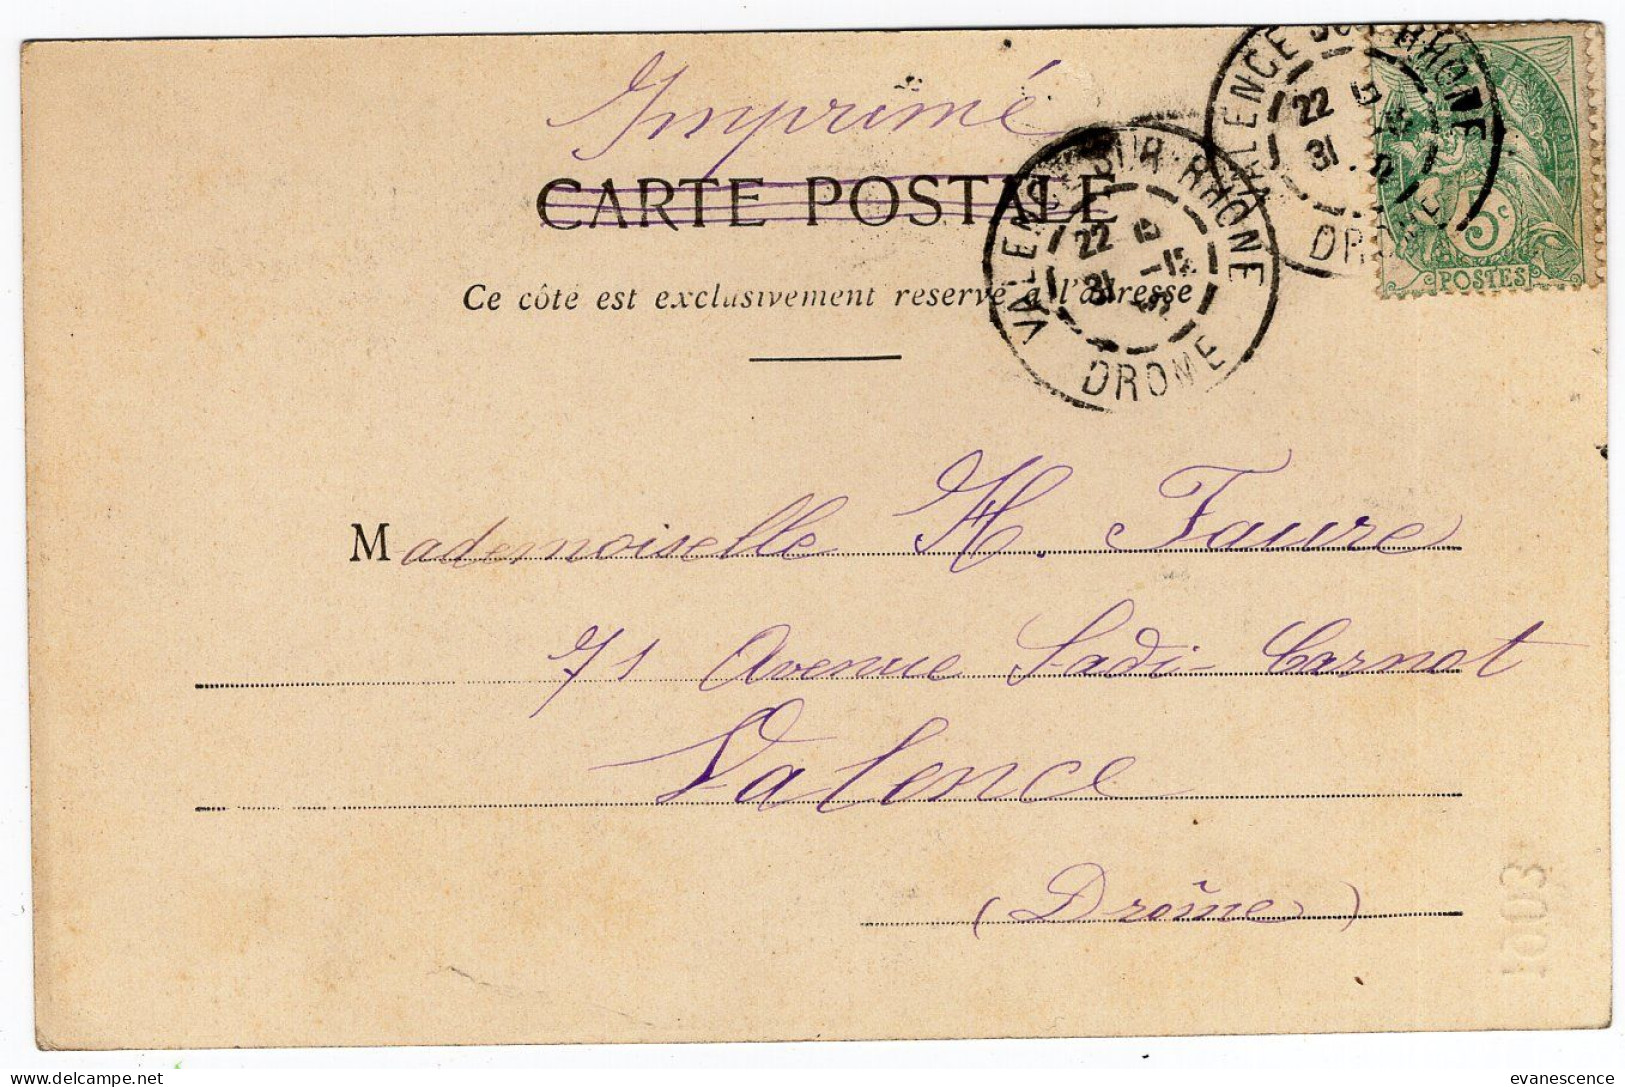 Imprimé
CARTE POSTALE
Ce côté est exclusivement reservé à l'adresse
VALENCE-SUR-RHONE
22
31 -12
DROME
VALENCE SUR RHONE
22
31
DROME
5c
POSTES
Mademoiselle H. Faure
71 Avenue Sadi-Carnot
Valence
(Drôme)
1903
evanescence